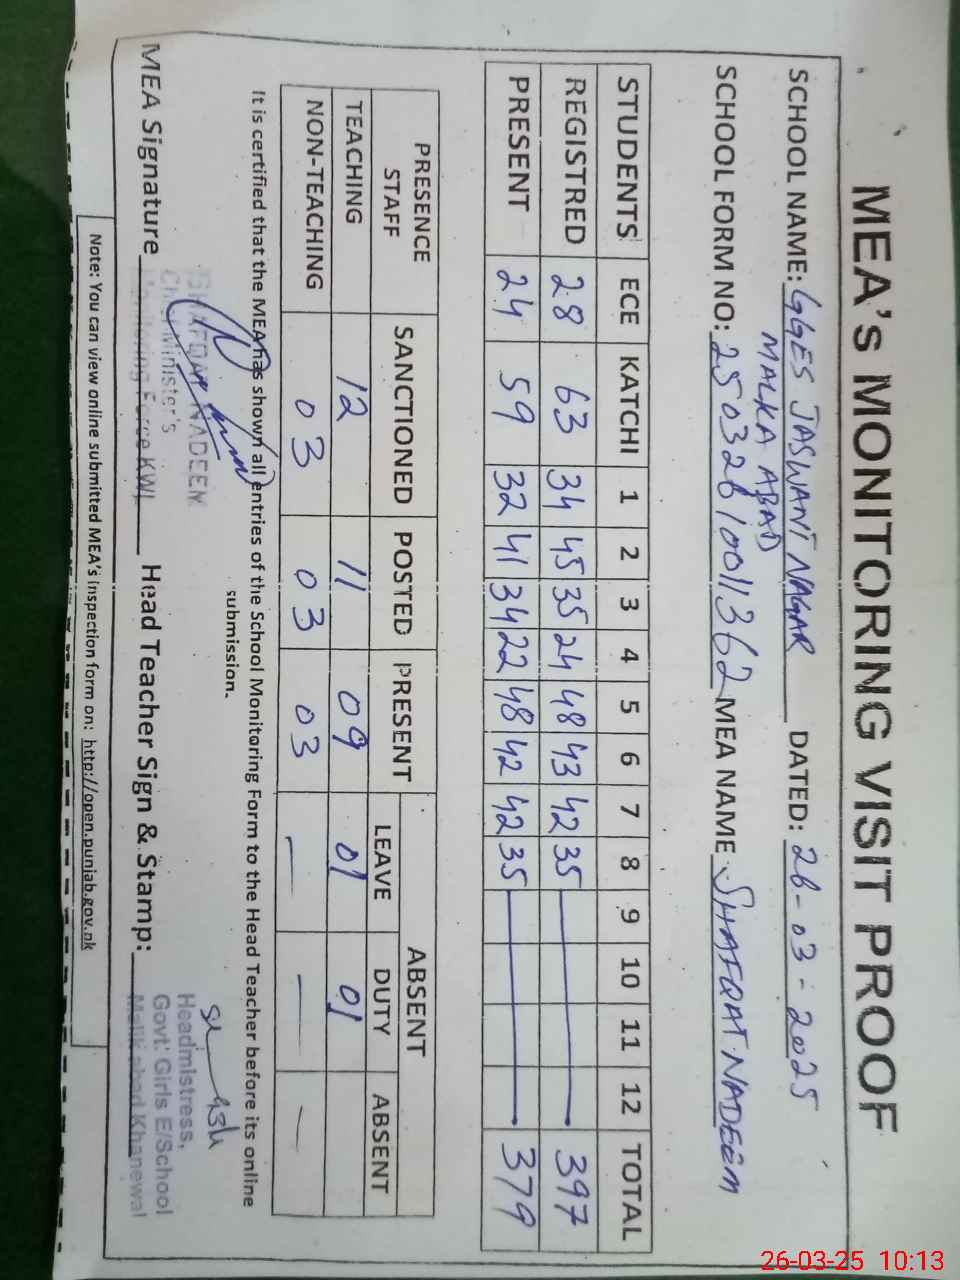 MEA's MONITORING VISIT PROOF
SCHOOL NAME: GGES JASWANT NAGAR DATED: 26-03-2025
MALKA ABAD
SCHOOL FORM NO: 25032610011362 MEA NAME SHAFQAT NADEEM
STUDENTS ECE KATCHI 1 2 3 4 5 6 7 8 9 10 11 12 TOTAL
REGISTRED 28 63 34 45 35 24 48 43 42 35 397
PRESENT 24 59 32 41 34 22 48 42 42 35 379
PRESENCE STAFF SANCTIONED POSTED PRESENT ABSENT
LEAVE DUTY ABSENT
TEACHING 12 11 09 01 01
NON-TEACHING 03 03 03 — — —
It is certified that the MEA has shown all entries of the School Monitoring Form to the Head Teacher before its online
submission.
SHAFQAT NADEEM
Chief Minister's
Monitoring Force KWL
Headmistress,
Govt: Girls E/School
Malikabad Khanewal
MEA Signature Head Teacher Sign & Stamp:
Note: You can view online submitted MEA's inspection form on: http://open.punjab.gov.pk
26-03-25 10:13